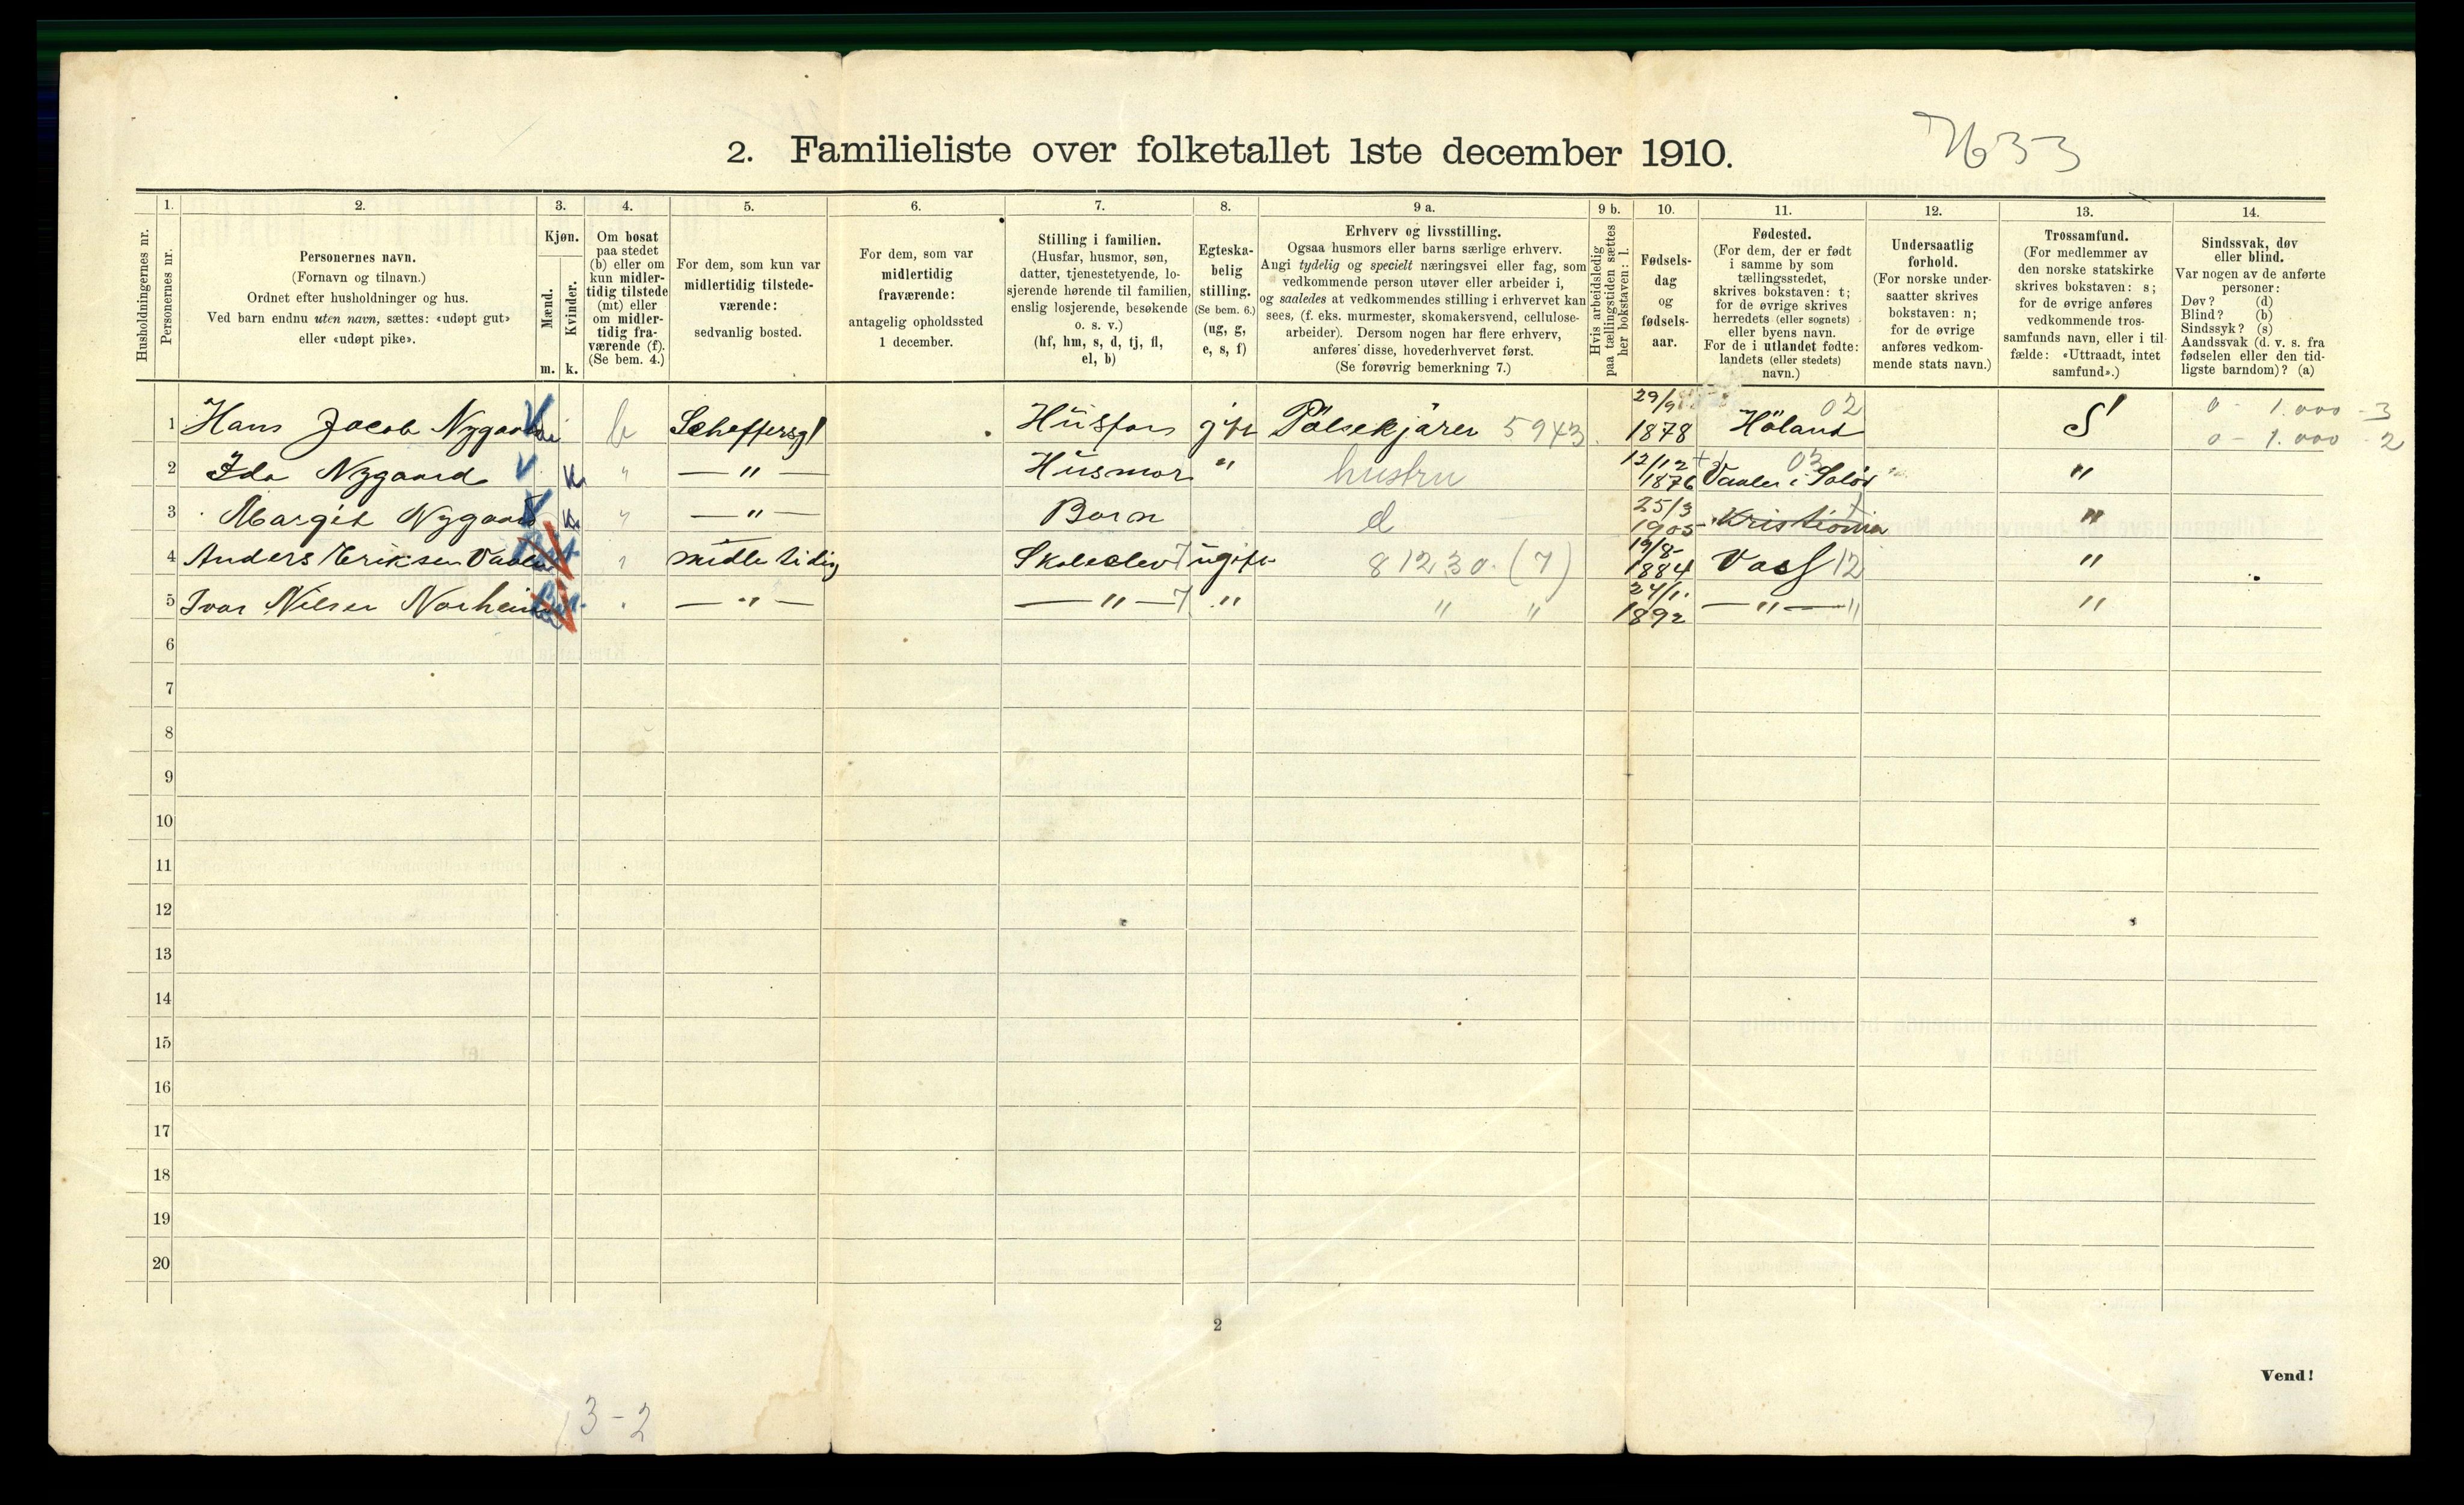 7633
2. Familieliste over folketallet 1ste december 1910.
Husholdningernes nr.
1.
Personernes nr.
2.
Personernes navn.
(Fornavn og tilnavn.)
Ordnet efter husholdninger og hus.
Ved barn endnu uten navn, sættes: «udøpt gut»
eller «udøpt pike».
3.
Kjøn.
Mænd.
Kvinder.
m. k.
4.
Om bosat
paa stedet
(b) eller om
kun midler-
tidig tilstede
(mt) eller
om midler-
tidig fra-
værende (f).
(Se bem. 4.)
5.
For dem, som kun var
midlertidig tilstede-
værende:
sedvanlig bosted.
6.
For dem, som var
midlertidig
fraværende:
antagelig opholdssted
1 december.
7.
Stilling i familien.
(Husfar, husmor, søn,
datter, tjenestetyende, lo-
sjerende hørende til familien,
enslig losjerende, besøkende
o. s. v.)
(hf, hm, s, d, tj, fl,
el, b)
8.
Egteska-
belig
stilling.
(Se bem. 6.)
(ug, g,
e, s, f)
9 a.
Erhverv og livsstilling.
Ogsaa husmors eller barns særlige erhverv.
Angi tydelig og specielt næringsvei eller fag, som
vedkommende person utøver eller arbeider i,
og saaledes at vedkommendes stilling i erhvervet kan
sees, (f. eks. murmester, skomakersvend, cellulose-
arbeider). Dersom nogen har flere erhverv,
anføres disse, hovederhvervet først.
(Se forøvrig bemerkning 7.)
9 b.
Hvis arbeidsledig
paa tællingstiden sættes
her bokstaven: l.
10.
Fødsels-
dag
og
fødsels-
aar.
11.
Fødested.
(For dem, der er født
i samme by som
tællingsstedet,
skrives bokstaven: t;
for de øvrige skrives
herredets (eller sognets)
eller byens navn.
For de i utlandet fødte:
landets (eller stedets)
navn.)
12.
Undersaatlig
forhold.
(For norske under-
saatter skrives
bokstaven: n;
for de øvrige
anføres vedkom-
mende stats navn.)
13.
Trossamfund.
(For medlemmer av
den norske statskirke
skrives bokstaven: s;
for de øvrige anføres
vedkommende tros-
samfunds navn, eller i til-
fælde: «Uttraadt, intet
samfund».)
14.
Sindssvak, døv
eller blind.
Var nogen av de anførte
personer:
Døv? (d)
Blind? (b)
Sindssyk? (s)
Aandssvak (d. v. s. fra
fødselen eller den tid-
ligste barndom)? (a)
1 Hans Jacob Nygaard b Scheffersgt Husfar gift Pölsekjärer 5943 29/9 1878 Höland 02 S 0 - 1.000 - 3
0 - 1.000 - 2
2 Ida Nygaard k " — " — Husmor " hustru 12/12 1876 Vaaler i Solör 03 "
3 Margit Nygaard k " — " — Barn d 25/3 1905 Kristiania t "
4 Anders Eriksen Vaale midletidig Skoleelev 7 ugift 81230. (7) 19/8- 1884 Voss 12 "
5 Ivar Nilsen Norheim — " — — " — 7 " " " 24/1. 1892 — " — " "
6
7
8
9
10
11
12
13
14
15
16
17
18
19
20
2
Vend!
3-2